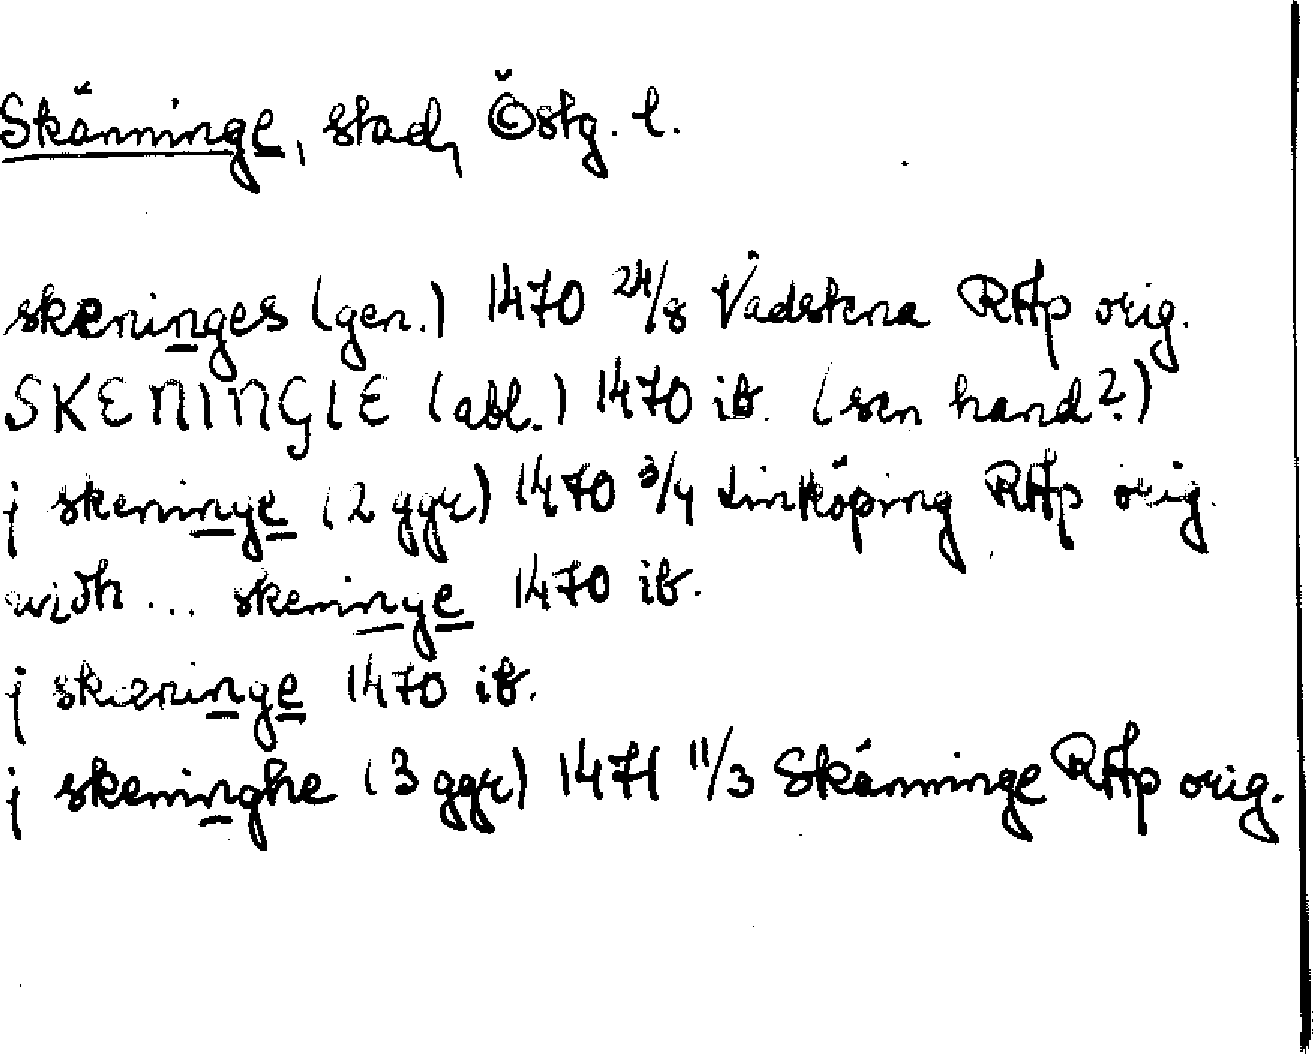 Skänninge, stad, Östg. l.
skæninges (gen.) 1470 24/8 Vadstena RAp orig.
SKENINGIE (abl.) 1470 ib. (sen hand?)
j skeninge (2 ggr) 1470 3/4 Linköping RAp orig.
widh ... skeninge 1470 ib.
j skæninge 1470 ib.
j skeninghe (3 ggr) 1471 11/3 Skänninge RAp orig.